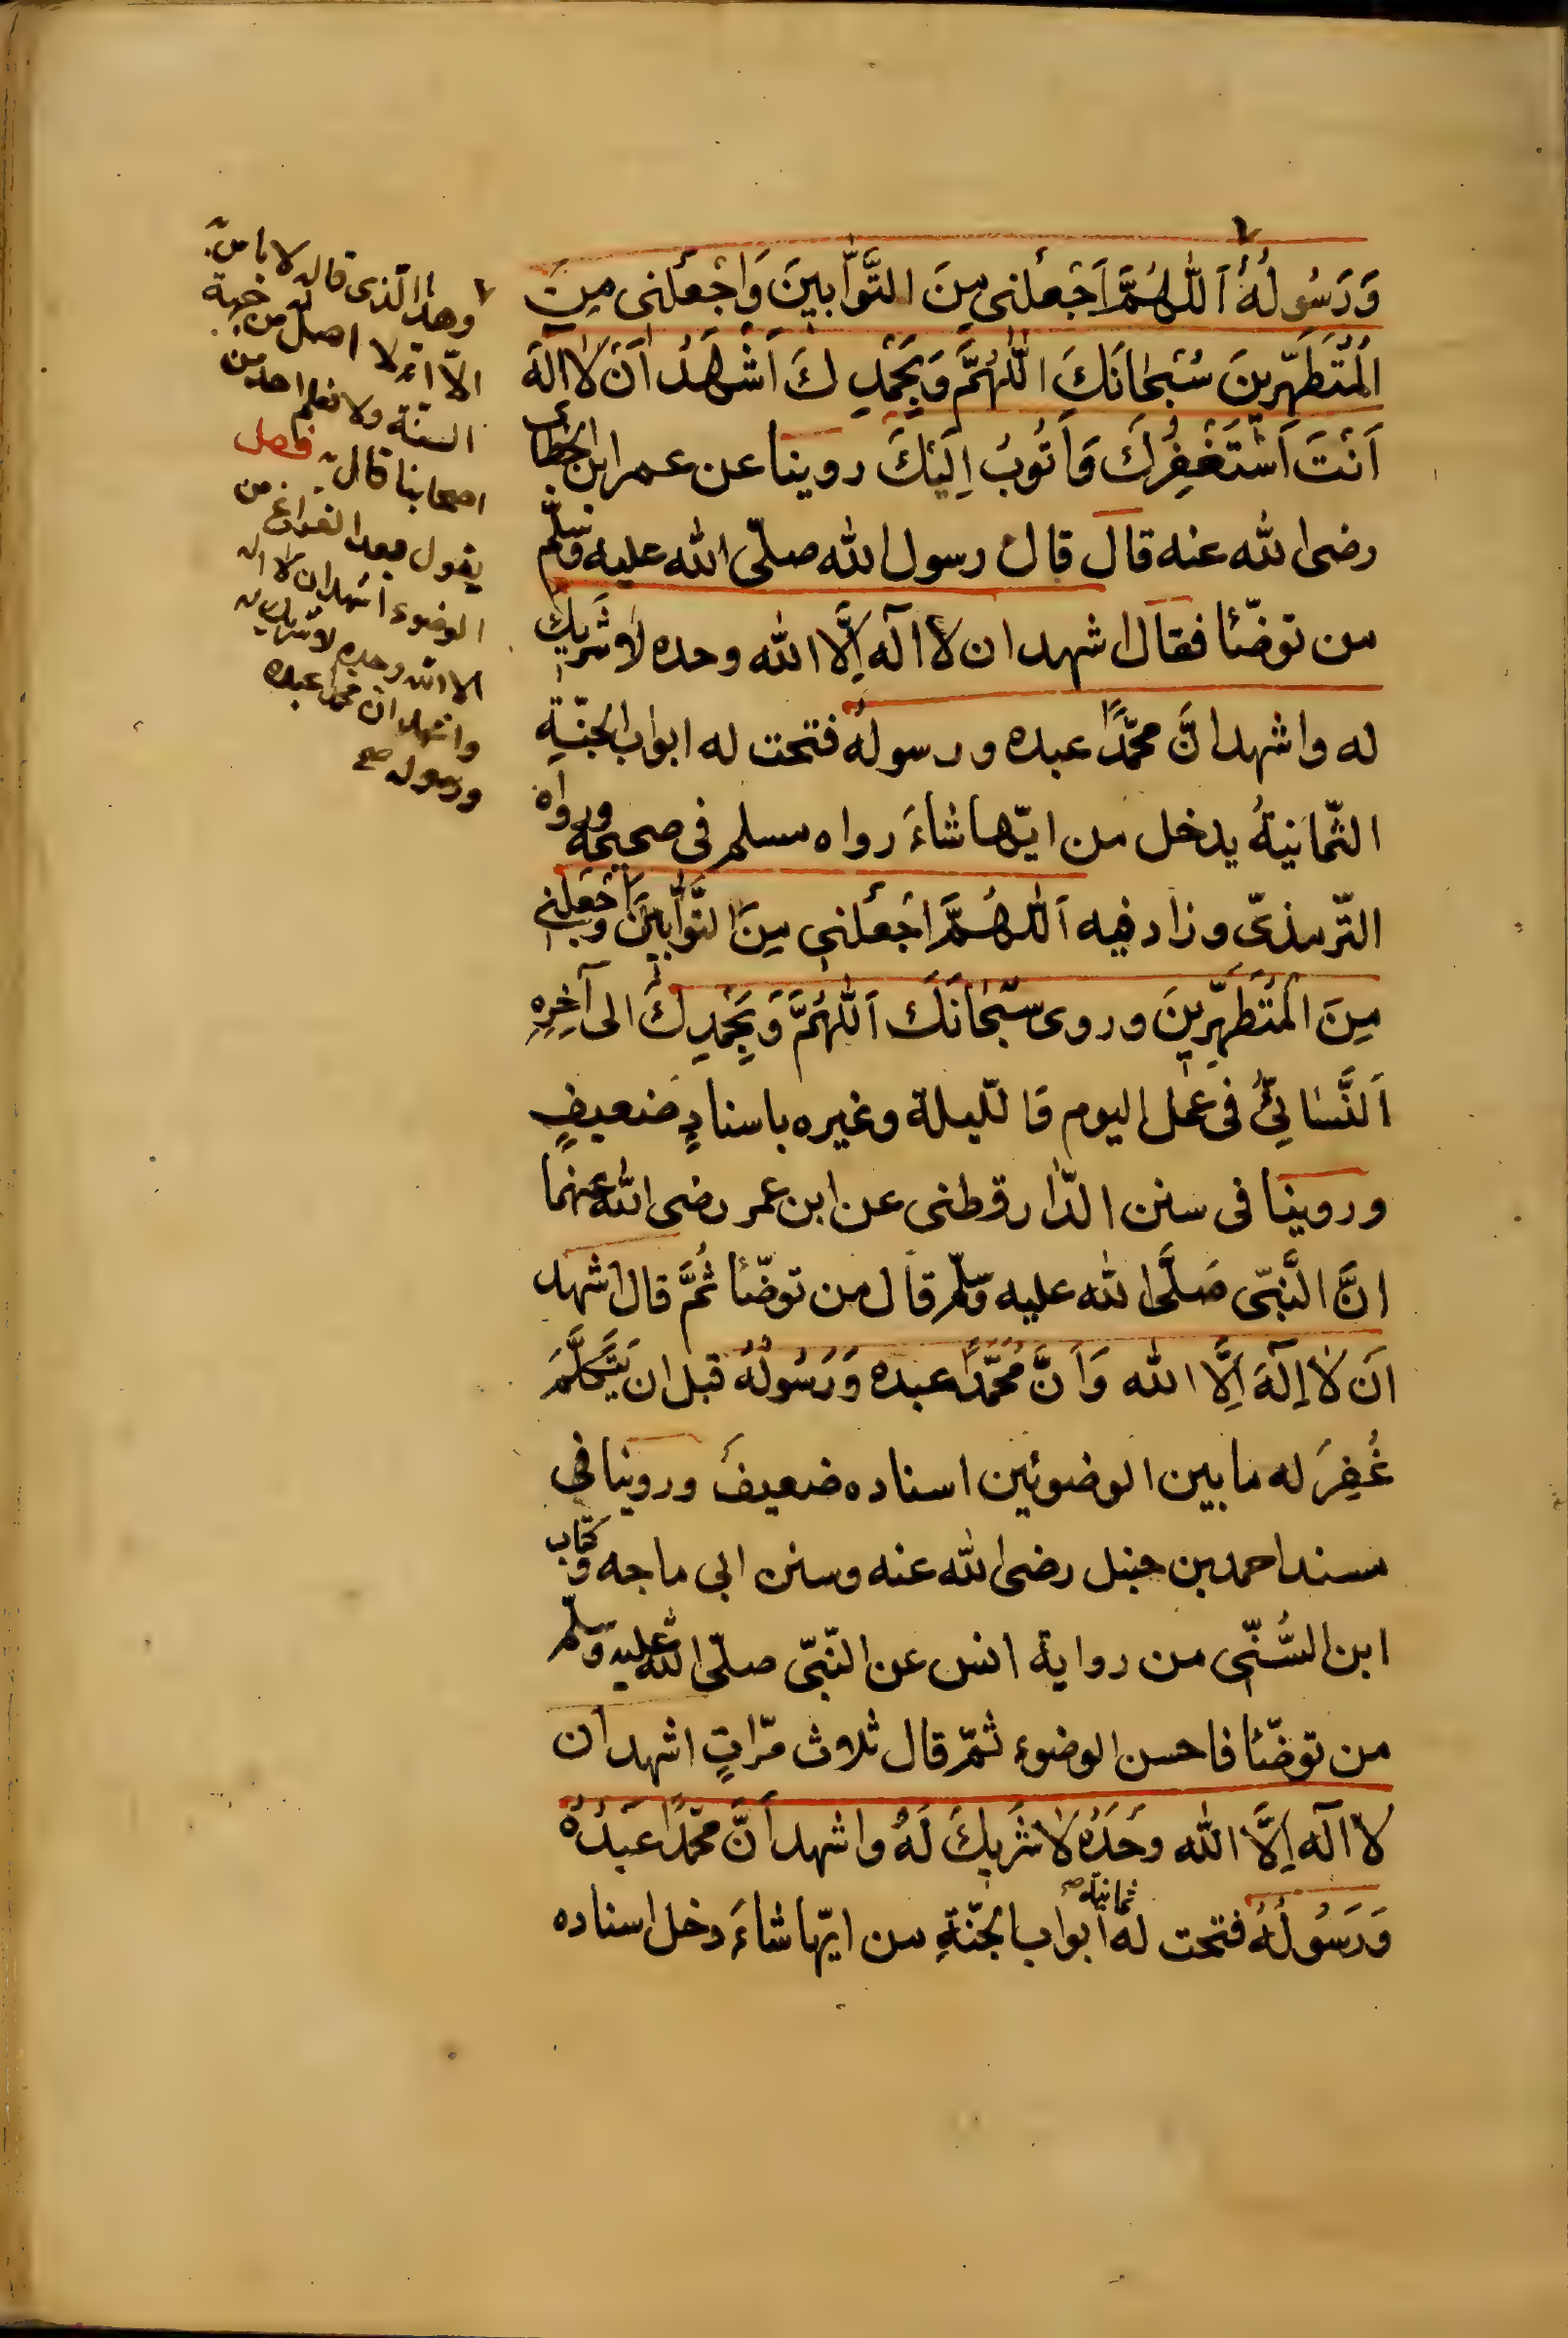 وَرَسُولُهُ اَللّٰهُمَّ اَجْعَلْنى مِنَ التَّوّٰابينَ وَاجْعَلْنى مِنَ
الْمُتَطَهِّرينَ سُبْحٰانَكَ اللّٰهُمَّ وَبِحَمْدِكَ اَشْهَدُ اَنْ لاٰ اِلٰهَ
اَنْتَ اَسْتَغْفِرُكَ وَاَتُوبُ اِلَيْكَ روينا عن عمر ابن الخطاب
رضى الله عنه قال قال رسول الله صلّى الله عليه وسلّم
من توضّئا فقال اشهد ان لا اله اِلَّا الله وحده لا شريك
له واشهد انَّ محمّدًا عبده ورسولُهُ فتحت له ابواب الجنّةِ
الثّمانيةُ يدخل من ايّها شاءَ رواه مسلم فى صحيحه ورواه
التّرمذىّ وزاد فيه اَللّٰهُمَّ اجْعَلْنى مِنَ التَّوّٰابينَ وَاجْعَلْنى
مِنَ الْمُتَطَهِّرينَ وروى سُبْحٰانَكَ اَللّٰهُمَّ وَبِحَمْدِكَ الى آخِرِهِ
اَلنَّسٰائِىُّ فى عمل اليوم والّليلة وغيره باسنادٍ ضعيفٍ
وروينا فى سنن الدّٰارقطنى عن ابن عمر رضى الله عنهما
انَّ النَّبىّ صَلَّى الله عليه وسلّم قال من توضّئا ثُمَّ قال اشهد
اَن لاٰ اِلٰهَ اِلَّا الله وَاَنَّ مُحَمَّدًا عبده وَرَسُولُهُ قبل ان يَتَكَلَّمَ
غُفِرَ له ما بين الوضوئين اسناده ضعيف وروينا فى
مسند احمد بن حنبل رضى الله عنه وسنن ابى ماجه وكتاب
ابن السُّنّى من رواية انس عن النّبىّ صلّى الله عليه وسلّم
من توضّئا فاحسن الوضوء ثمّ قال ثلاث مرّاتٍ اشهد ان
لا اله اِلَّا الله وَحْدَهُ لاٰ شَريكَ لَهُ واشهد اَنَّ محمّدًا عَبْدُهُ
وَرَسُولُهُ فتحت له ثمانية صح ابواب الجنّةِ من ايّها شاءَ دخل اسناده
وهذا الّذى قاله لا باس به
الّا انّه لا اصل له من جهة
السنّة ولا نعلم احد من
اصحابنا قال به فصل
يقول بعد الفراغ من
الوضوء اشهد ان لا اله
الا الله وحده لا شريك له
واشهد ان محمدا عبده
ورسوله صح